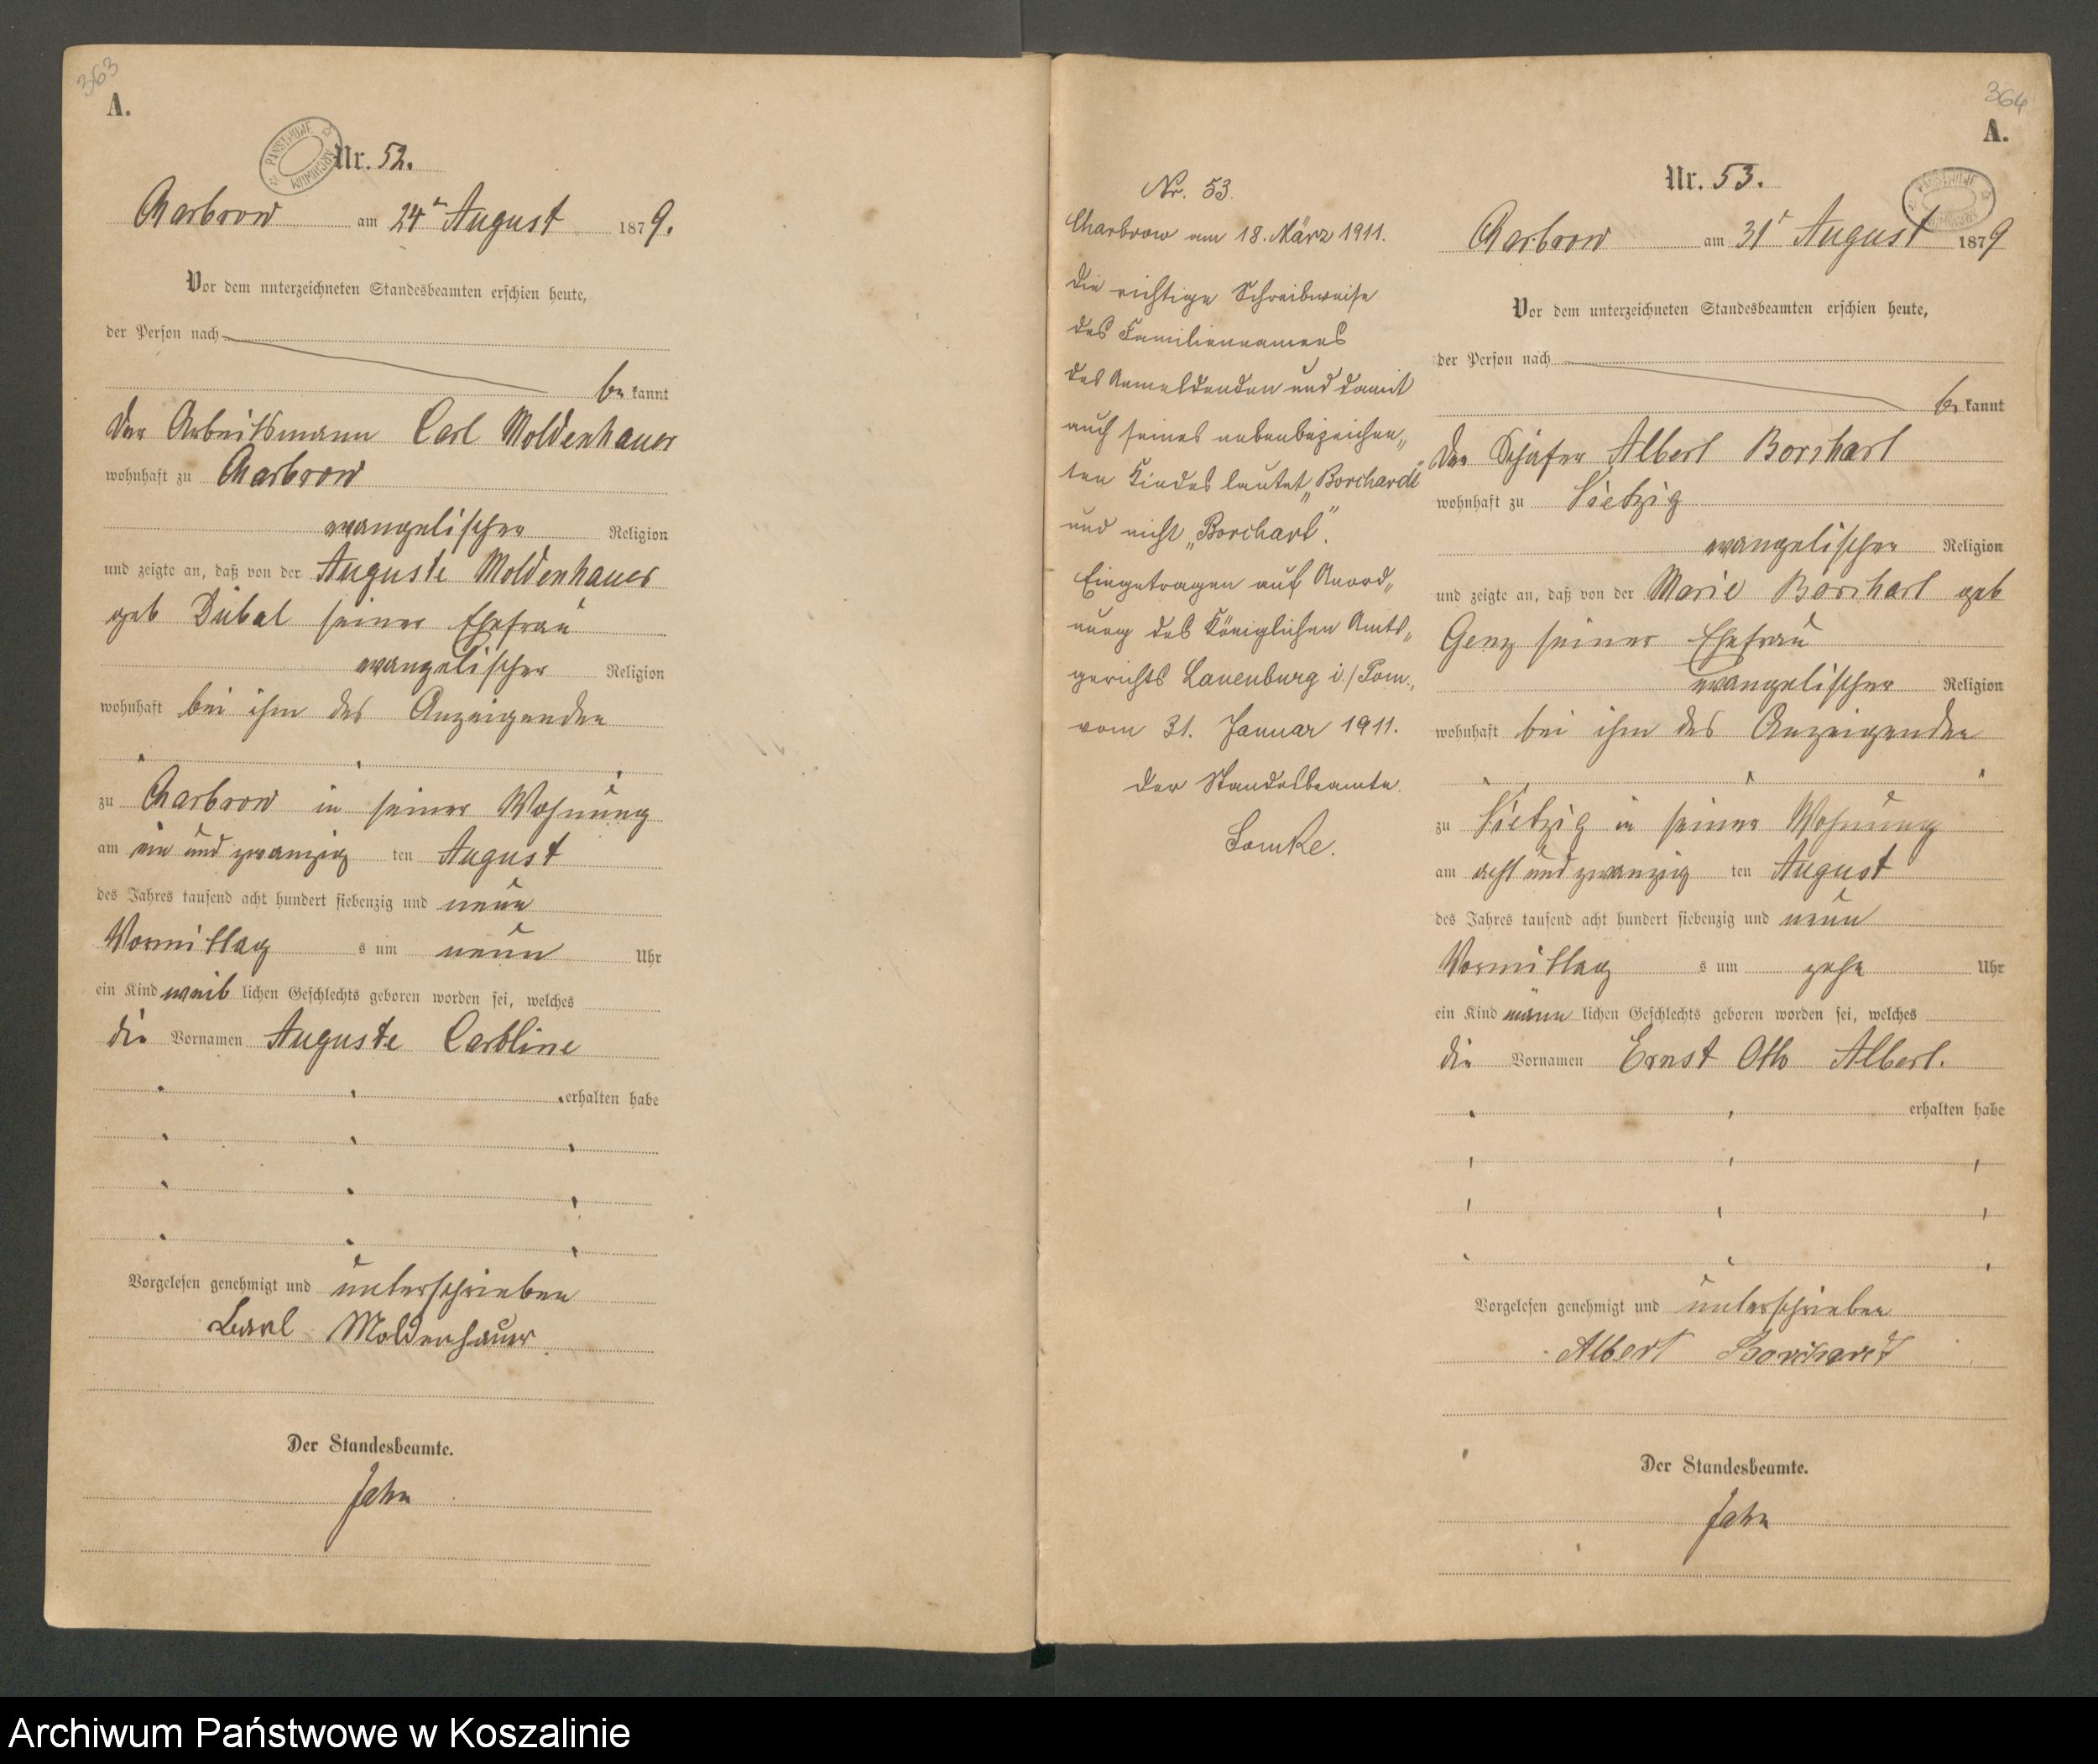 363
A.
PAŃSTWOWE ARCHIWUM
Nr. 52.
Charbrow am 24ten August 1879.
Vor dem unterzeichneten Standesbeamten erschien heute,
der Person nach
bekannt
Der Arbeitsmann Carl Moldenhauer
wohnhaft zu Charbrow
evangelischer Religion
und zeigte an, daß von der Auguste Moldenhauer
geb Dübal seiner Ehefrau
evangelischer Religion
wohnhaft bei ihm des Anzeigenden
zu Charbrow in seiner Wohnung
am ein und zwanzig ten August
des Jahres tausend acht hundert siebenzig und neun
Vormittag s um neun Uhr
ein Kind weiblichen Geschlechts geboren worden sei, welches
die Vornamen Auguste Caroline
erhalten habe
Vorgelesen genehmigt und unterschrieben
Carl Moldenhauer.
Der Standesbeamte.
Jahn
Nr. 53.
Charbrow am 18. März 1911.
Die richtige Schreibweise
des Familiennamens
des Anmeldenden und damit
auch seines nebenbezeichne„
ten Kindes lautet „Borchardt"
und nicht „Borchart".
Eingetragen auf Anord„
nung des Königlichen Amts„
gerichts Lauenburg i./Pom.,
vom 31. Januar 1911.
Der Standesbeamte.
364
A.
Nr. 53.
Charbrow am 31t August 1879
Vor dem unterzeichneten Standesbeamten erschien heute,
der Person nach
bekannt
Der Schäfer Albert Borchart
wohnhaft zu Vietzig
evangelischer Religion
und zeigte an, daß von der Marie Borchart geb
Genz seiner Ehefrau
evangelischer Religion
wohnhaft bei ihm des Anzeigenden
zu Vietzig in seiner Wohnung
am acht und zwanzig ten August
des Jahres tausend acht hundert siebenzig und neun
Vormittag s um zehn Uhr
ein Kind männlichen Geschlechts geboren worden sei, welches
die Vornamen Ernst Otto Albert.
erhalten habe
Vorgelesen genehmigt und unterschrieben
Albert Borchardt
Der Standesbeamte.
Jahn
Archiwum Państwowe w Koszalinie